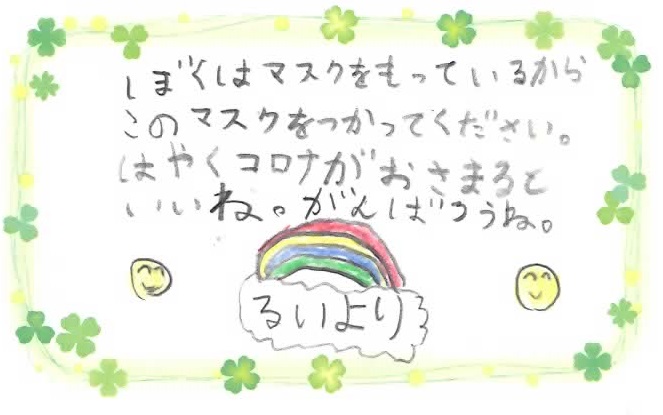 ぼくはマスクをもっているから
このマスクをつかってください。
はやくコロナがおさまると
いいね。がんばろうね。
るいより